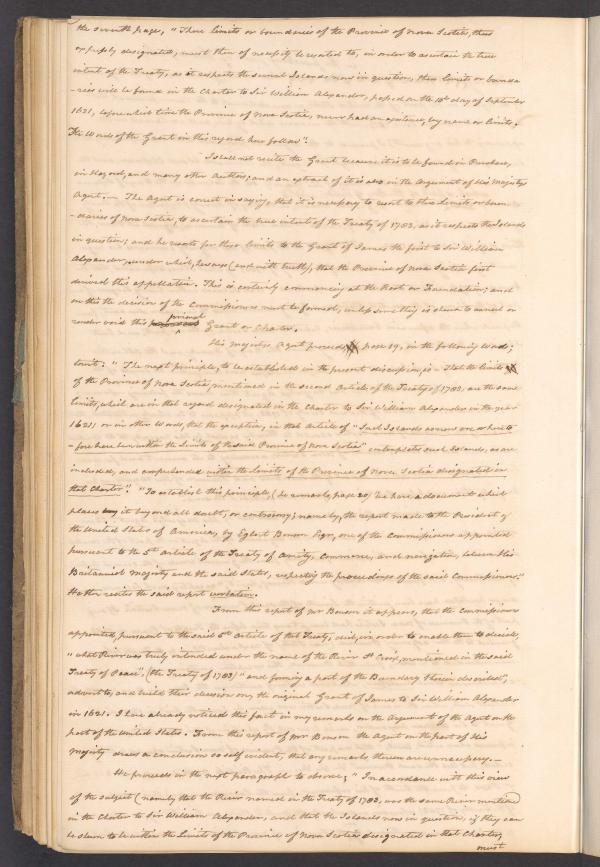 the seventh page, "These limits or boundaries of the Province of Nova Scotia, thus
expressly designated, must then of necessity be resorted to, in order to ascertain the true
intent of the Treaty, as it respects the several Islands now in question, these limits or bounda
-ries will be found in the Charter to Sir William Alexander, passed on the 10th day of September
1621, before which time the Province of Nova Scotia, never had an existence, by name or limits.
The Words of the Grant in this regard here follow".
I shall not recite the Grant because it is to be found in Purchase,
in Hazard, and many other Authors; and an extract of it is also in the Argument of His Majestys
Agent.— The Agent is correct in saying, that it is necessary to resort to these Limits or boun
-daries of Nova Scotia, to ascertain the true intent of the Treaty of 1783, as it respects the Islands
in question; and he resorts for these limits to the Grant of James the first to Sir William
Alexander, under which, he says (and with truth), that the Province of Nova Scotia first
derived this appellation. This is certainly commencing at the Root or Foundation; and
on this the decision of the Commissioners must be formed, unless something is shewn to cancel or
render void this primal Grant or Charter.
His Majestys Agent proceeds, page 19, in the following Words;
towit: "The next principle, to be established in the present discussion, is – That the limits
of the Province of Nova Scotia, mentioned in the second Article of the Treaty of 1783, are the same
limits, which are in that regard designated in the Charter to Sir William Alexander in the year
1621; or in other Words, that the exception, in that Article of "Such Islands as now are or hereto-
-fore have been within the Limits of the said Province of Nova Scotia" contemplates such Islands, as are
included, and comprehended within the limits of the Province of Nova Scotia designated in
that Charter". "To establish this principle, (he remarks, page 20) We have a document which
places it beyond all doubt, or controversy; namely, the report made to the President of
the United States of America, by Egbert Benson Esqr, one of the Commissioners appointed
pursuant to the 5th article of the Treaty of Amity, Commerce, and navigation, between His
Britannick Majesty and the said States, respecting the proceedings of the said Commissioners."
He then recites the said report verbatim.
From this report of Mr Benson it appears, that the Commissioners
appointed, pursuant to the said 5th article of that Treaty, did, in order to enable them to decide,
"what River was truly intended under the name of the River St Croix, mentioned in the said
Treaty of Peace", (the Treaty of 1783) "and forming a part of the Boundary therein described",
advert to, and build their decision on, the original Grant of James to Sir William Alexander
in 1621. I have already noticed this fact in my remarks on the Argument of the Agent on the
part of the United States. From this report of Mr Benson the Agent on the part of His
Majesty draws a conclusion so self evident, that any remarks thereon are unnecessary.—
He proceeds in the next paragraph to observe; "In accordance with this view
of the subject (namely that the River named in the Treaty of 1783, was the same River mentioned
in the Charter to Sir William Alexander, and that the Islands now in question, if they can
be shewn to be within the Limits of the Province of Nova Scotia designated in that Charter,
must